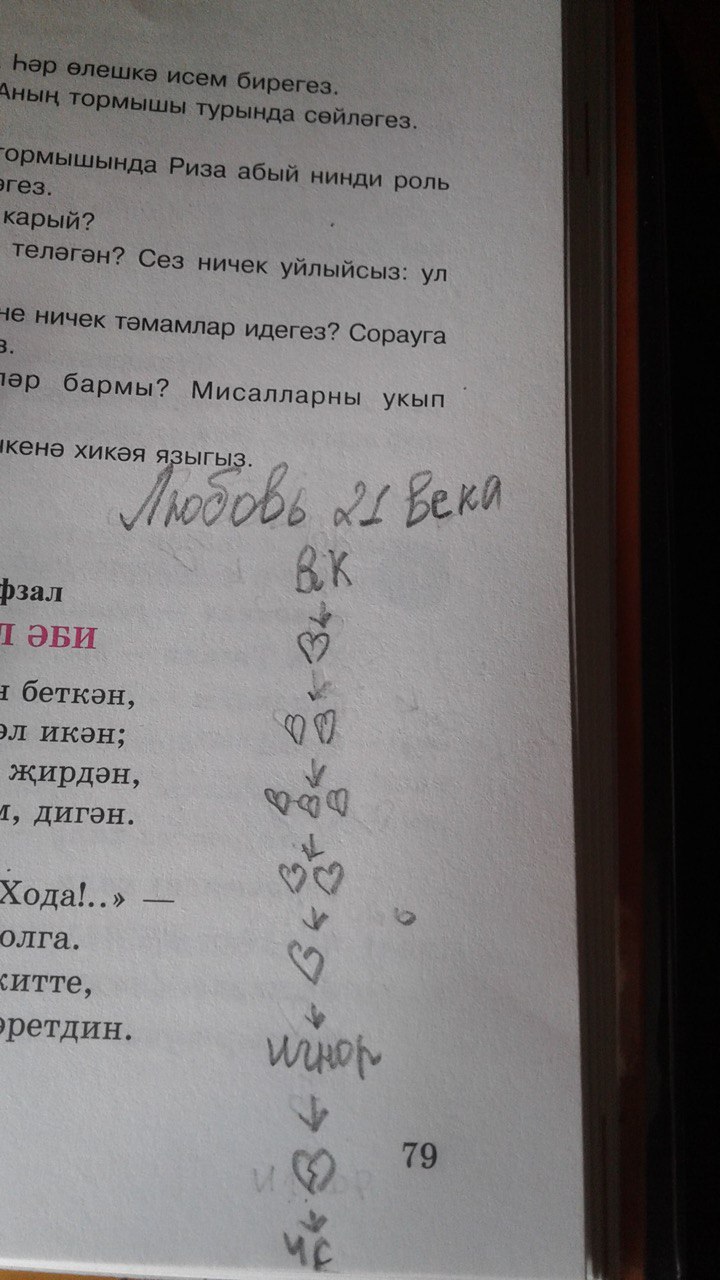 Һәр өлешкә исем бирегез.
Аның тормышы турында сөйләгез.
тормышында Риза абый нинди роль
әгез.
карый?
теләгән? Сез ничек уйлыйсыз: ул
не ничек тәмамлар идегез? Сорауга
з.
ләр бармы? Мисалларны укып
кенә хикәя языгыз.
Любовь 21 века
ВК
фзал
Л ӘБИ
н беткән,
әл икән;
җирдән,
м, дигән.
Хода!..» —
олга.
китте,
әретдин.
игнор
79
чс